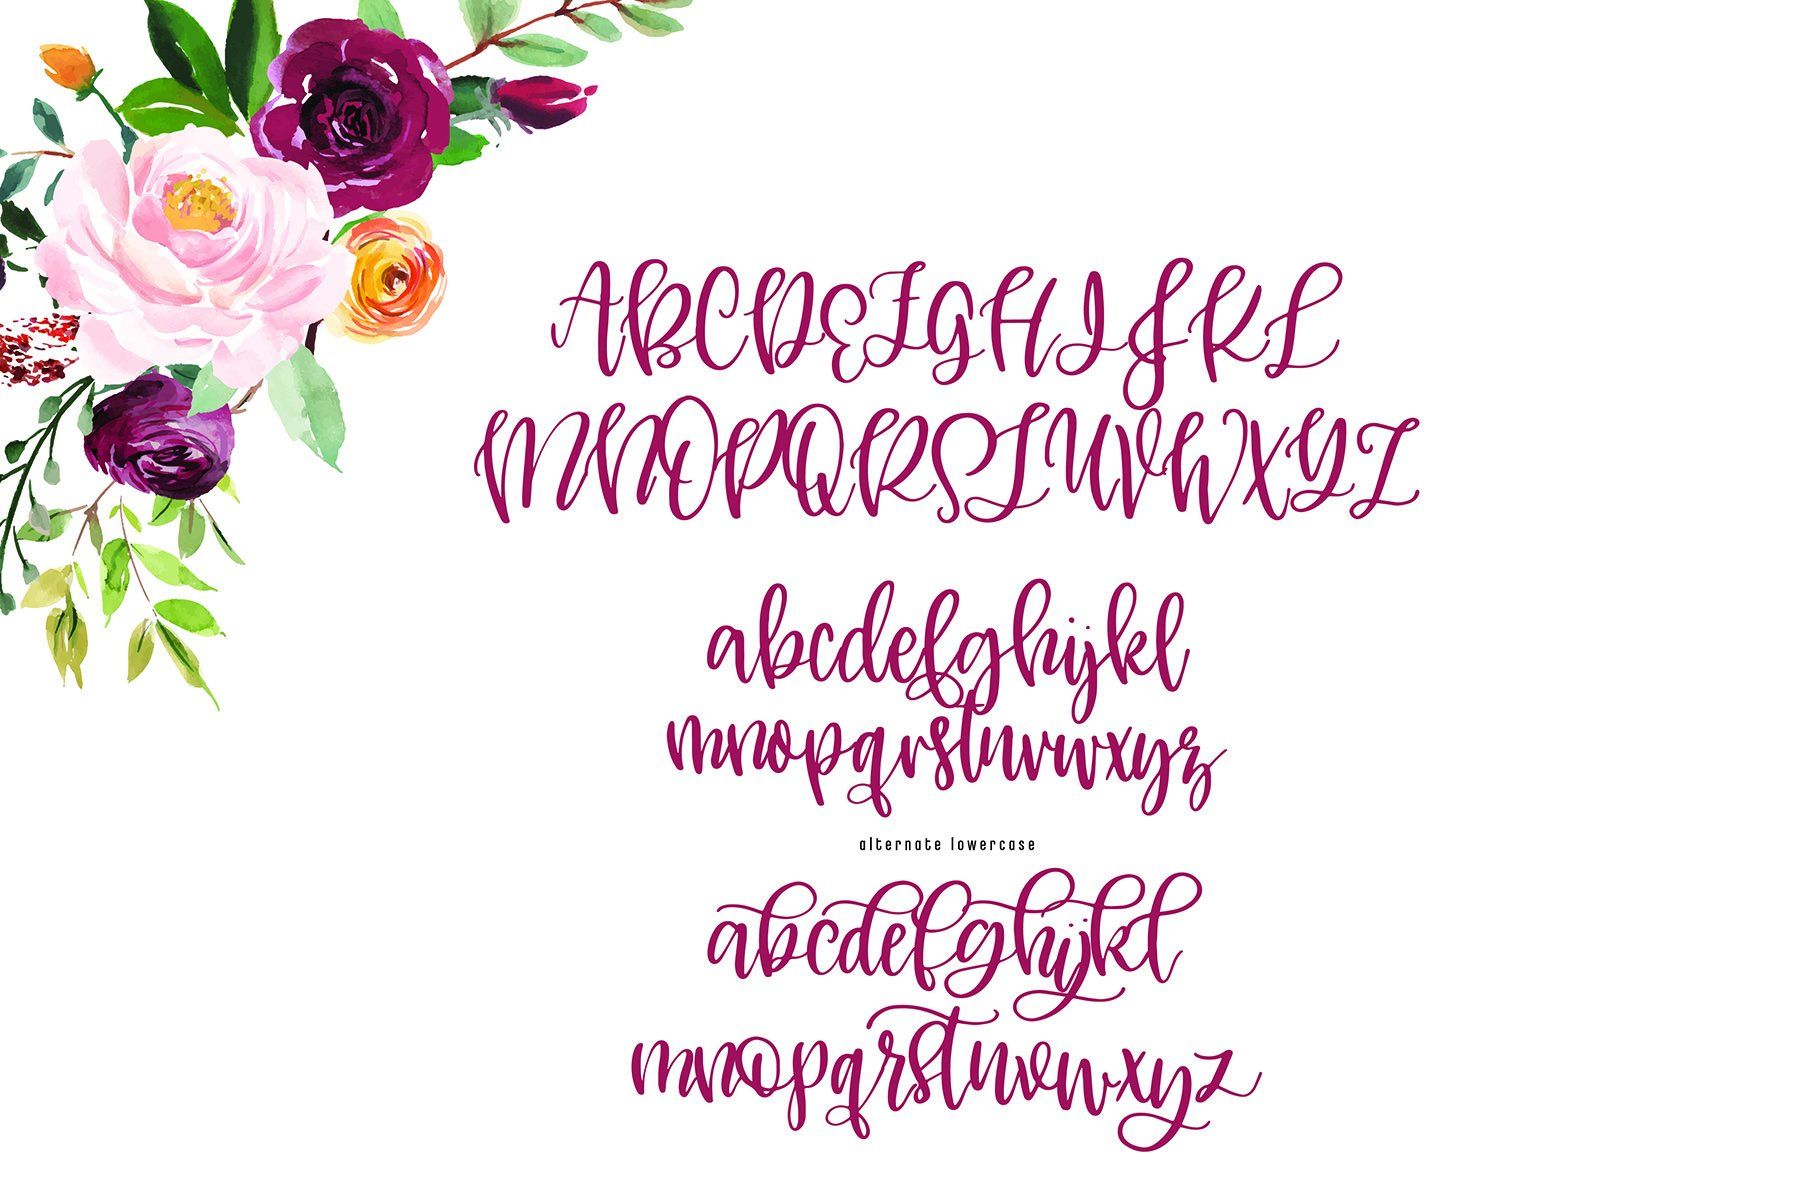 ABCDEFGHIJKL
MNOPQRSTUVWXYZ
abcdefghijkl
mnopqrstuvwxyz
alternate lowercase
abcdefghijkl
mnopqrstuvwxyz